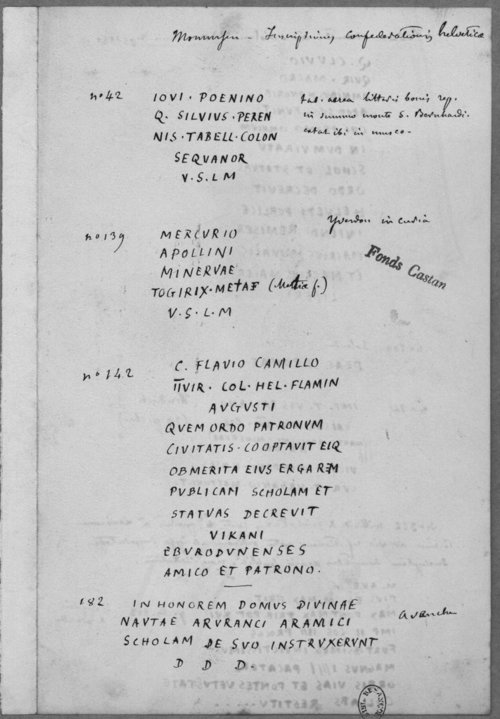 Mommsen - Inscriptiones confoederationis helveticae
n° 42
IOVI · POENINO
Q. SILVIUS · PEREN
NIS · TABELL · COLON
SEQUANOR
V · S · L M
tab. aerea litteris bonis rep.
in summo monte S. Bernhardi.
extat ibi in museo -
n° 139
Yverdon in curia
MERCURIO
APOLLINI
MINERVAE
TOGIRIX · METIAE (Mettiae f.)
V · S · L · M
Fonds Castan
n° 142
C. FLAVIO CAMILLO
IIVIR · COL · HEL · FLAMIN
AUGUSTI
QUEM ORDO PATRONUM
CIVITATIS · COOPTAVIT EIQ
OB MERITA EIUS ERGA REM
PUBLICAM SCHOLAM ET
STATUAS DECREVIT
VIKANI
EBURODUNENSES
AMICO ET PATRONO.
182
IN HONOREM DOMUS DIVINAE
NAUTAE ARURANCI ARAMICI
SCHOLAM DE SUO INSTRUXERUNT
D D D
Avenche